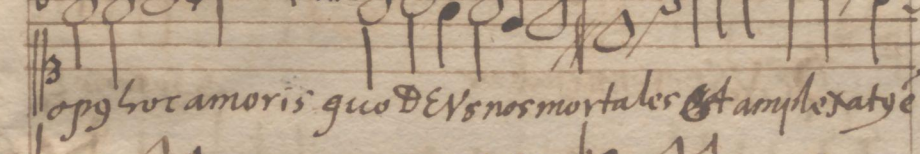 opꝯ hoc amoris quo DEVs nos mortales est amplexatꝯ ē